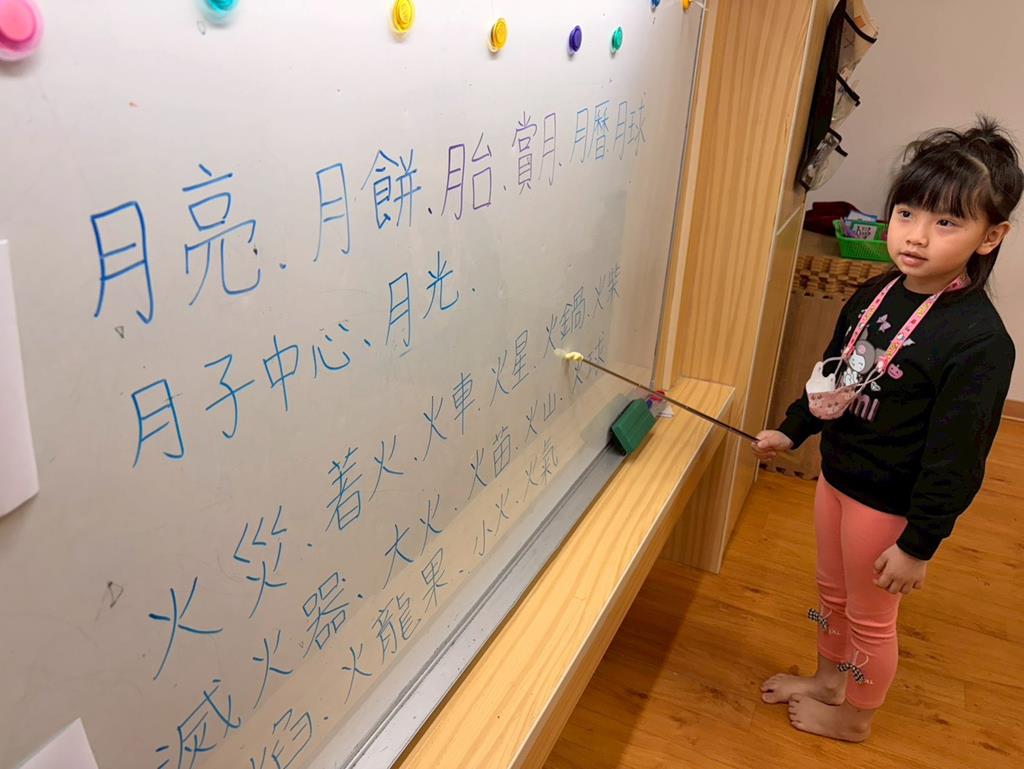 月亮、月餅、月台、賞月、月曆、月球
月子中心、月光、
火災、著火、火車、火星、火鍋、火柴
滅火器、大火、火苗、火山、火球
焰、火龍果、小火、火氣